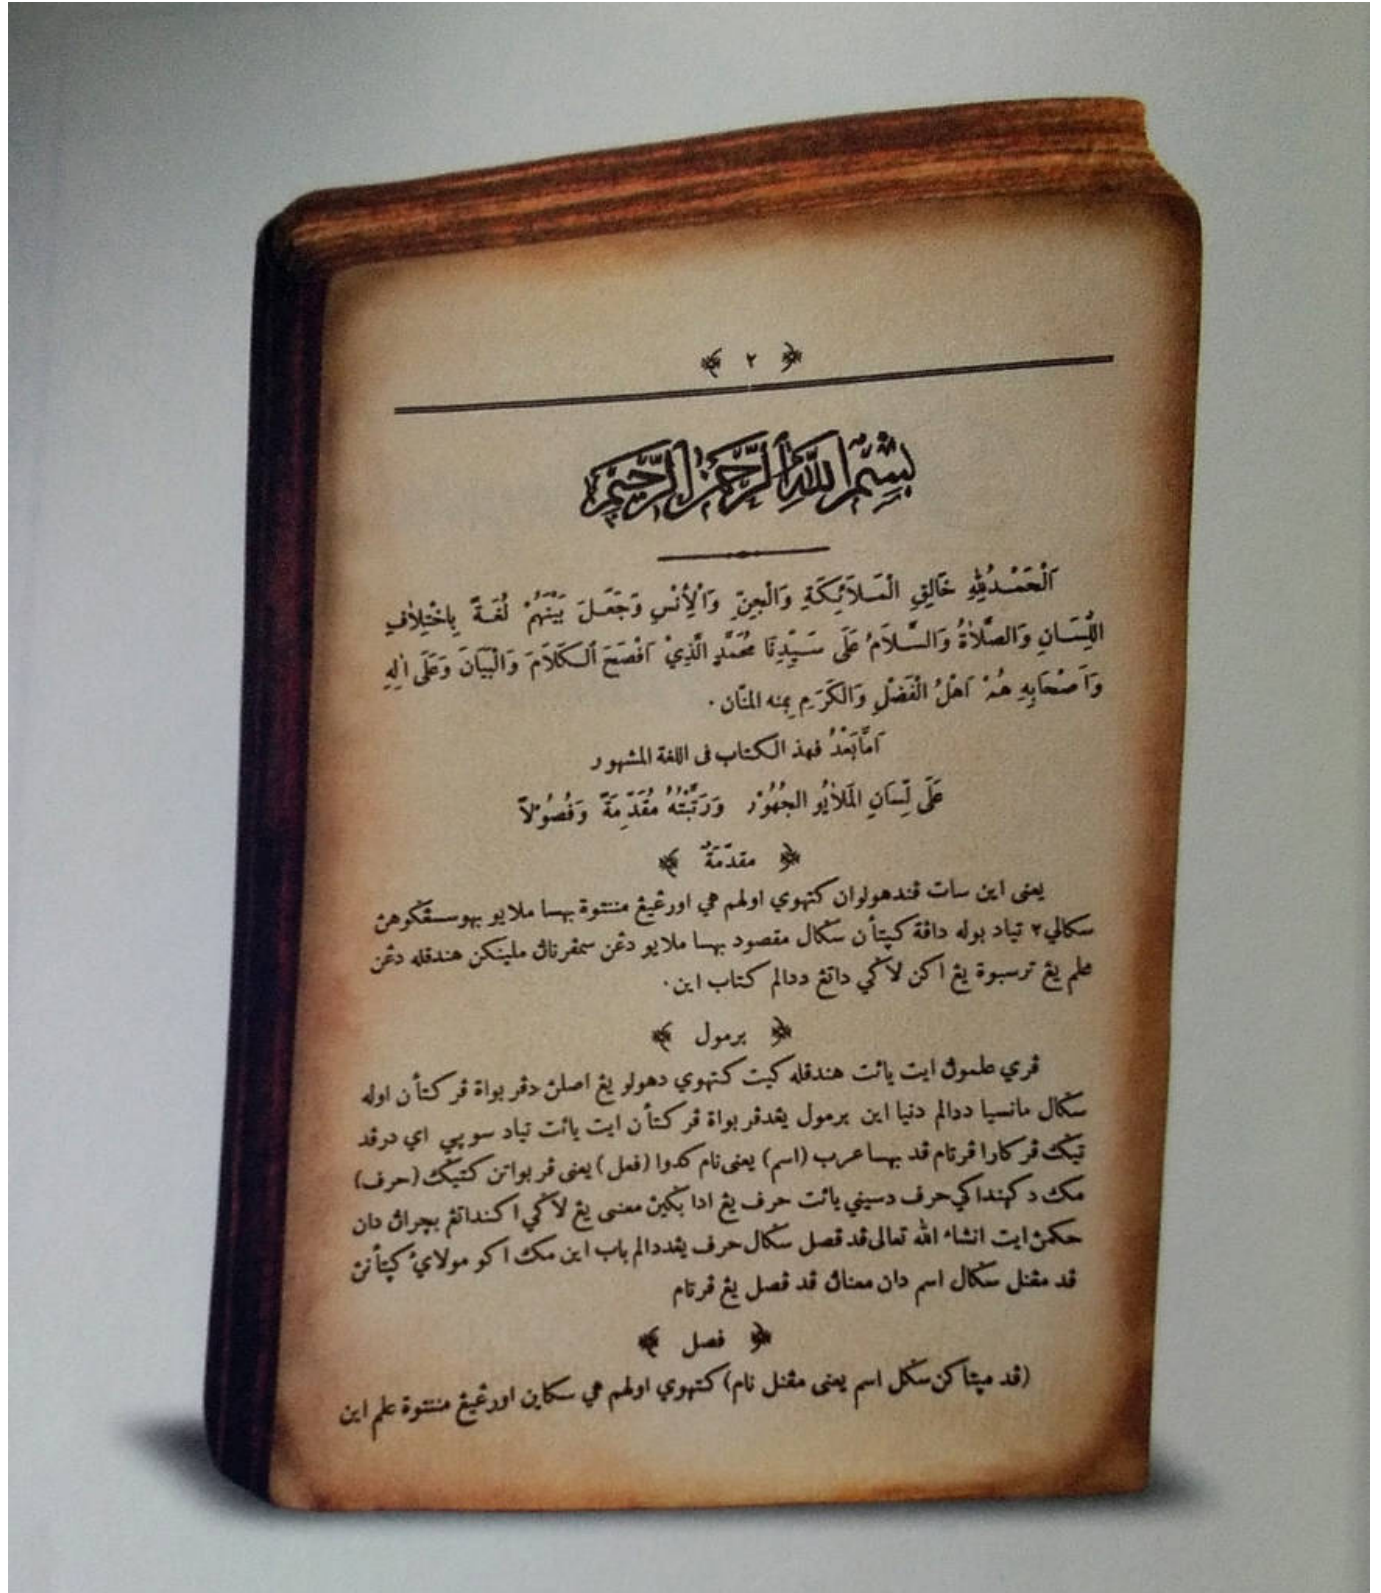 ﴿ ٢ ﴾
بِسْمِ اللَّهِ الرَّحْمَنِ الرَّحِيْمِ
اَلْحَمْدُ لِلّٰهِ خَالِقِ الْمَلَائِكَةِ وَالْجِنِّ وَالْأِنْسِ وَجَعَلَ بَيْنَهُمْ لُغَةً بِاخْتِلَافِ
اللِّسَانِ وَالصَّلَاةُ وَالسَّلَامُ عَلَى سَيِّدِنَا مُحَمَّدٍ الَّذِيْ اَفْصَحَ الْكَلَامَ وَالْبَيَانَ وَعَلَى اٰلِهِ
وَاَصْحَابِهِ هُمْ اَهْلُ الْفَضْلِ وَالْكَرَمِ بِمِنه المنّان .
اَمَّابَعْدُ فهذ الكتاب فى اللغة المشهور
عَلَى لِسَانِ الْمَلَايُو الجُهُوْر وَرَتَّبْتُهُ مُقَدِّمَةً وَفُصُوْلاً
﴿ مقدّمَةٌ ﴾
يعنى اين سات ڤندهولوان كتهوي اولهم هي اورڠيڠ مننتوة بهسا ملايو بهوسسڠݢوهڽ
سكالي٢ تياد بوله داڤة كڽتأن سݢال مقصود بهسا ملايو دڠن سمڤرناڽ ملينكن هندقله دڠن
علم يڠ ترسبوة يڠ اكن لاݢي داتڠ ددالم كتاب اين .
﴿ يرمول ﴾
ڤري علموڽ ايت يائت هندقله كيت كتهوي دهولو يڠ اصلڽ دڤربواة ڤركتأن اوله
سݢال مانسيا ددالم دنيا اين يرمول يڠدڤربواة ڤركتأن ايت يائت تياد سوڽي اي درڤد
تيݢ ڤركارا ڤرتام ڤد بهسا عرب (اسم) يعنى نام كدوا (فعل) يعنى ڤربواتن كتيݢ (حرف)
مك دكهنداكي حرف دسيني يائت حرف يڠ ادا بݢيڽ معنى يڠ لاݢي اكنداتڠ بچراڽ دان
حكمڽ ايت انشاء الله تعالى ڤد ڤصل سݢال حرف يڠددالم باب اين مك اكو مولاي كڽتأنڽ
ڤد مڠنل سݢال اسم دان معناڽ ڤد ڤصل يڠ ڤرتام
﴿ فصل ﴾
(ڤد مڽتاكن سݢل اسم يعنى مڠنل نام) كتهوي اولهم هي سكاين اورڠيڠ مننتوة علم اين